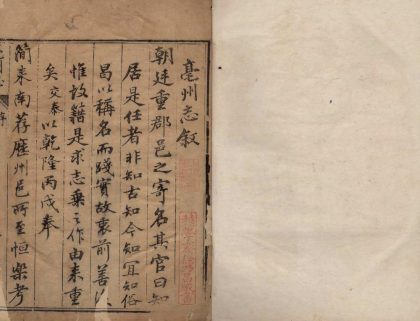 亳州志敘
朝廷重郡邑之寄名其官曰知
居是任者非知古知今知宜知俗
曷以稱名而踐實故衷前善法
惟故籍是求志乘之作由来重
矣交泰以乾隆丙戌奉
簡来南荐歷州邑所至恒樂考
序